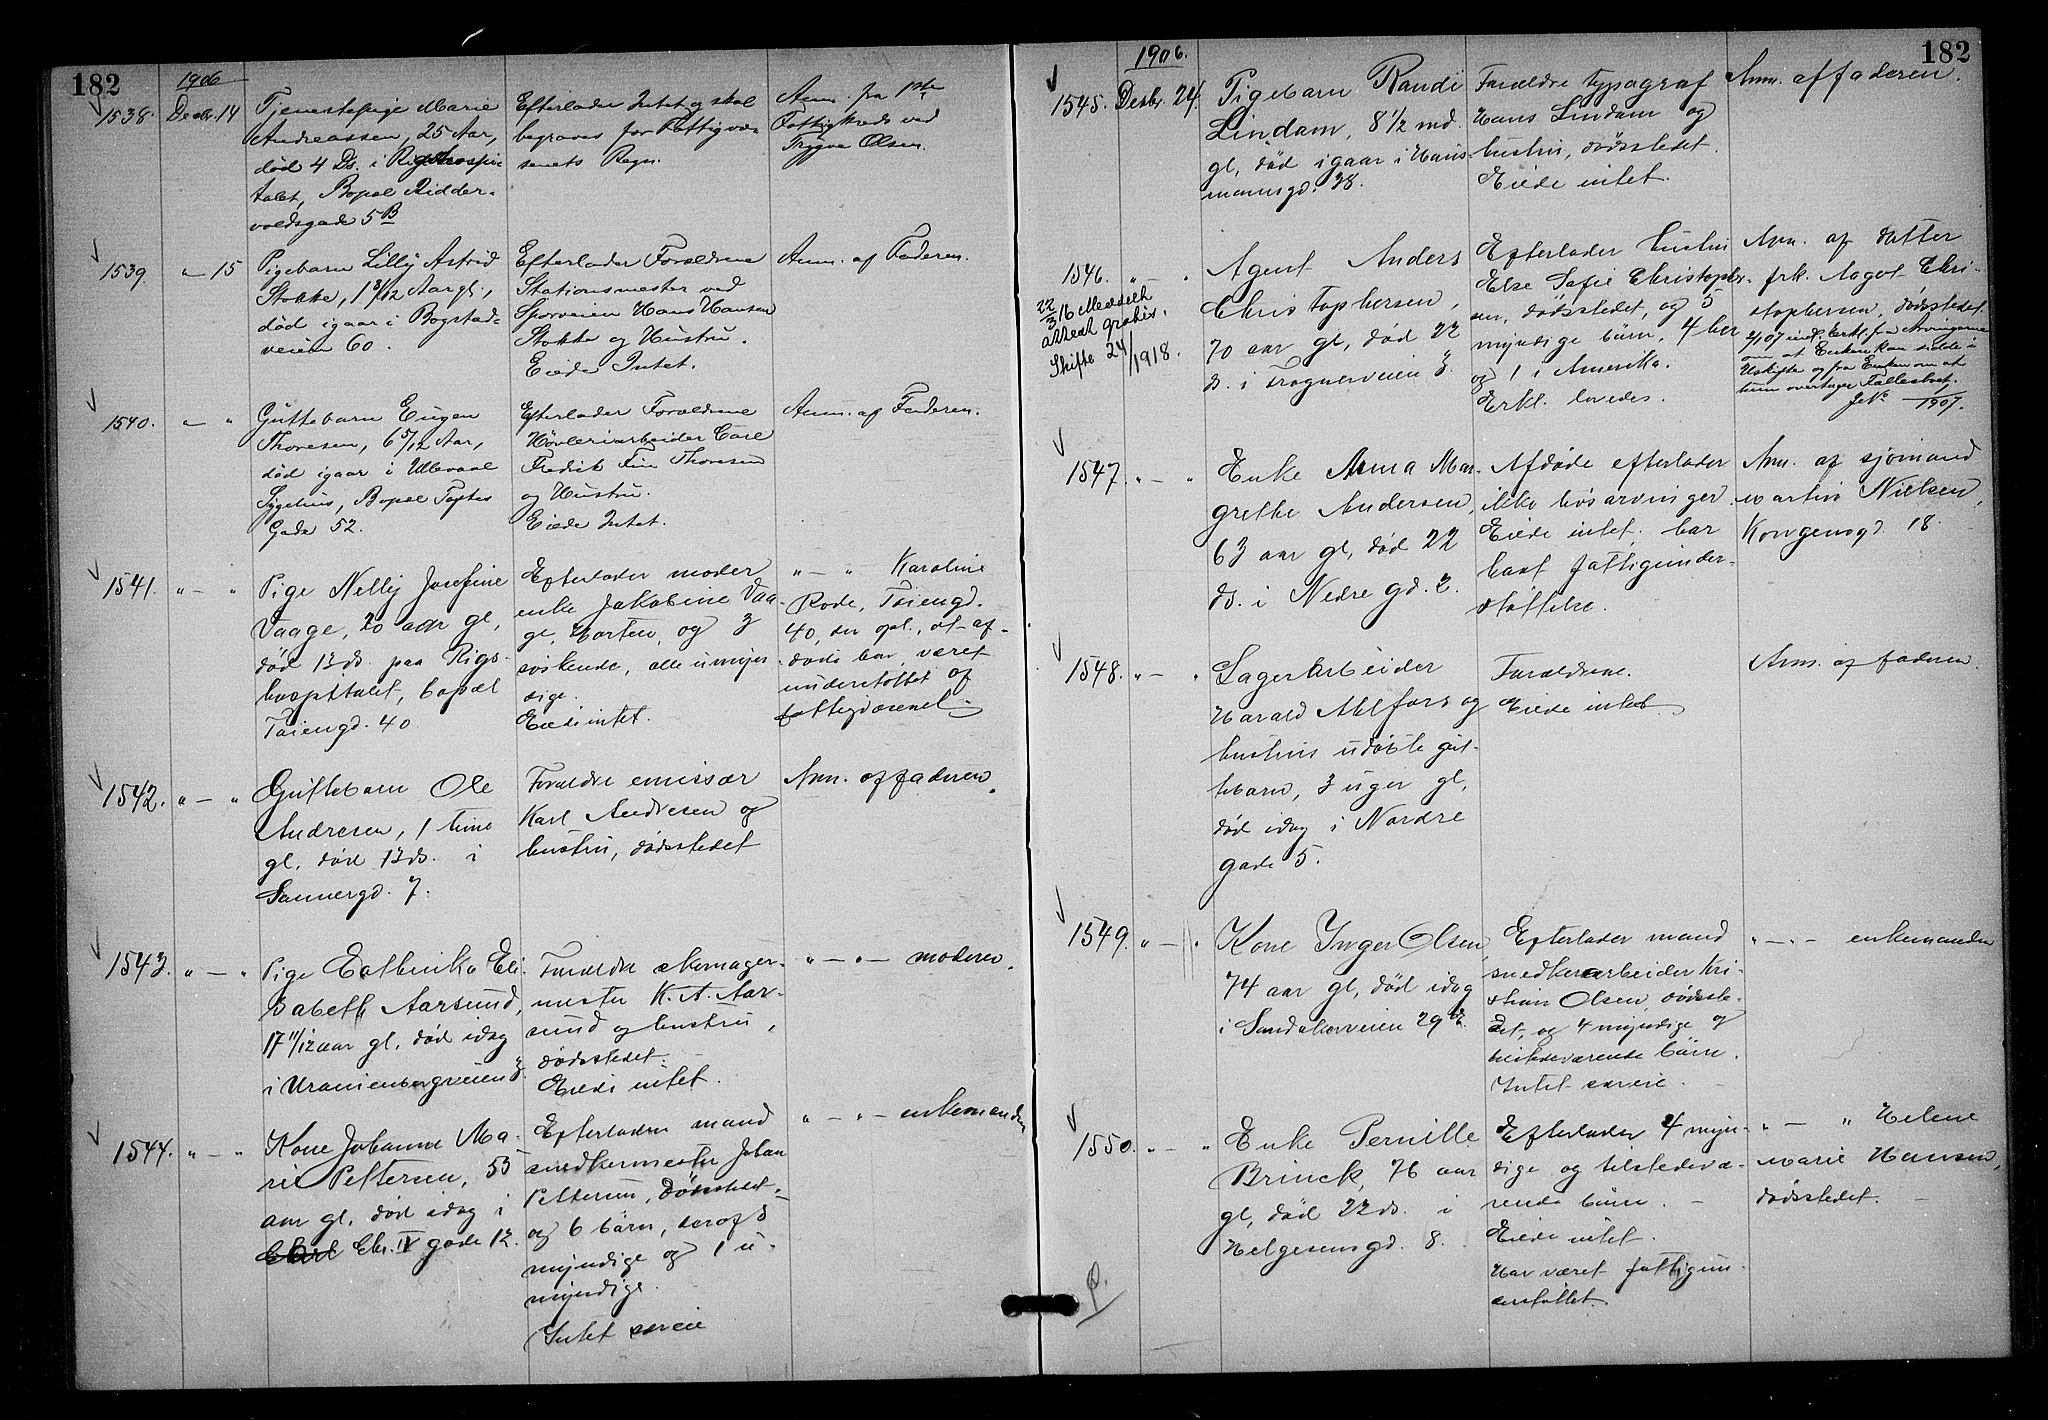 182
1906
1538. Decbr. 14
Tjenestepige Marie
Andreassen, 25 Aar,
død 4 Ds. i Rigshospi-
talet, Bopæl Ridder-
voldsgade 5B
Efterlader Intet og skal
begraves for Fattigvæ-
senets Regn.
Anm. fra 1ste
Fattigkreds ved
Trygve Olsen.
1539. " — 15
Pigebarn Lilly Astrid
Stokke, 1 8/12 Aar gl.,
død igaar i Bogstad-
veien 60.
Efterlader Forældrene
Stationsmester ved
Sporveien Hans Hansen
Stokke og Hustru.
Eiede Intet.
Anm. af Faderen.
1540. " — "
Guttebarn Eugen
Thoresen, 6 5/12 Aar,
død igaar i Ullevaal
Sygehus, Bopæl Toftes
Gade 52.
Efterlader Forældrene
Høvleriarbeider Carl
Fredrik Thoresen
og Hustru.
Eiede Intet.
Anm. af Faderen.
1541. " — "
Pige Nelly Josefine
Vaage, 20 aar gl,
død 13 ds. paa Rigs-
hospitalet, bopæl
Tøiengd. 40
Efterlader moder
enke Jakobine Vaa-
ge, Horten, og 3
søskende, alle umyn-
dige.
Eiede intet.
" — " Karoline
Rode, Tøiengd.
40, der opl., at af-
døde har været
understøttet af
fattigvæsenet.
1542. " — "
Guttebarn Ole
Andresen, 1 time
gl, død 13 ds. i
Sannergd. 7.
Forældre emissær
Karl Andresen og
hustru, dødsstedet
Anm. af faderen.
1543. " — "
Pige Eli-
sabeth Aarsund,
17 11/12 aar gl, død idag
i Uranienborgveien 3.
Forældre skomager-
mester K. A. Aar-
sund og hustru,
dødsstedet.
Eiede intet.
" — " — moderen.
1544. " — "
Kone Johanne Ma-
rie Pettersen, 55
aar gl, død idag i
Chr. IV gade 12.
Efterlader mand
snedkermester Johan
Pettersen, dødsstedet,
og 6 børn, deraf 5
myndige og 1 u-
myndige.
Intet særeie
" — " — enkemanden
182
1906.
1545. Desbr. 24.
Pigebarn Randi
Lindam, 8 1/2 md.
gl, død igaar i Haus-
mannsgd. 38.
Forældre typograf
Hans Lindam og
hustru, dødsstedet.
Eiede intet.
Anm. af faderen.
1546. " — "
22/3 16 Meddelt
attest gratis.
Skifte 24/1918.
Agent Anders
Christophersen,
70 aar gl, død 22
ds. i Frognerveien 3.
Efterlader hustru
Else Sofie Christopher-
sen, dødsstedet, og 5
myndige børn, 4 her
og 1 i Amerika.
Erkl. lovedes.
Anm. af datter
frk. Aagot Chri-
stophersen, dødsstedet.
2/1 07 indk. Erkl. fra Arvingerne
om at Enken kan sidde i
Uskifte og fra Enken om at
hun overtager Fællesboet.
1907.
1547. " — "
Enke Anna Mar-
grethe Andersen,
63 aar gl, død 22
ds. i Nedre gd. 2.
Afdøde efterlader
ikke livsarvinger.
Eiede intet, har
havt fattigunder-
støttelse.
Anm. af sjømand
Martin Nielsen,
Kongensgd. 18.
1548. " — "
Lagerarbeider
Harald Ahlfors og
hustrus udøbte gut-
tebarn, 3 uger gl,
død idag i Nordre
gade 5.
Forældrene.
Eiede intet.
Anm. af faderen.
1549. " — "
Kone Inger Olsen
74 aar gl, død idag
i Sandakerveien 29
Efterlader mand
snedkerarbeider Kri-
stian Olsen, dødsste-
det, og 4 myndige og
tilstedeværende børn.
Intet særeie.
" — " — enkemanden
1550. " — "
Enke Pernille
Brinck, 76 aar
gl, død 22 ds. i
Helgesensgd. 8.
Efterlader 4 myn-
dige og tilstedevæ-
rende børn.
Eiede intet.
Har været fattigun-
derstøttet.
" — " Helene
Marie Hansen,
dødsstedet.